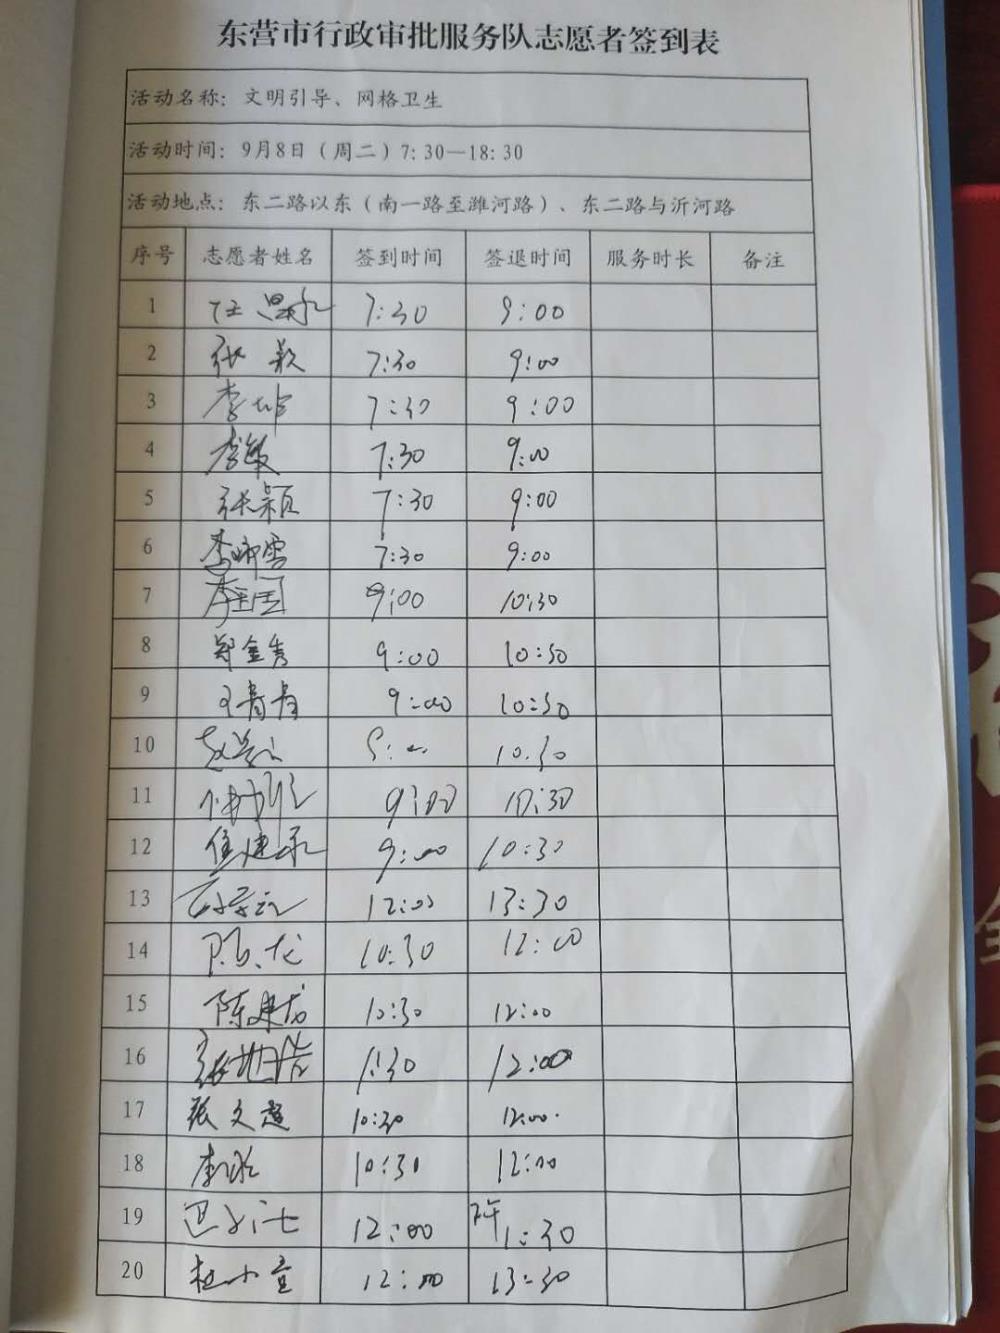 东营市行政审批服务队志愿者签到表
活动名称：文明引导、网格卫生
活动时间：9月8日（周二）7:30—18:30
活动地点：东二路以东（南一路至潍河路）、东二路与沂河路
序号 志愿者姓名 签到时间 签退时间 服务时长 备注
1 7:30 9:00
2 张 7:30 9:00
3 李 7:30 9:00
4 李敏 7:30 9:00
5 张颖 7:30 9:00
6 李 雪 7:30 9:00
7 李 9:00 10:30
8 郑金秀 9:00 10:30
9 王青青 9:00 10:30
10 10:30
11 9:00 10:30
12 9:00 10:30
13 12:00 13:30
14 陈龙 10:30 12:00
15 陈建 10:30 12:00
16 张 1:30 12:00
17 张文超 10:30 12:00
18 李 10:30 12:00
19 12:00 1:30
20 杜小 12:00 13:30